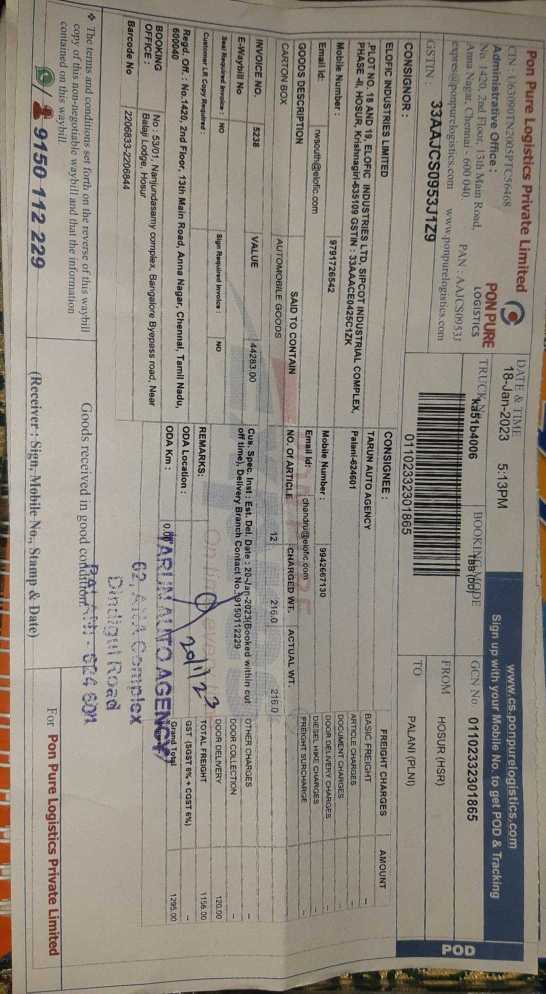 Pon Pure Logistics Private Limited
CIN : U63090TN2003PTC56468
Administrative Office :
No. 1420, 2nd Floor, 13th Main Road,
Anna Nagar, Chennai - 600 040 PAN : AAJCS0953J
expres@ponpurelogistics.com www.ponpurelogistics.com
GSTIN : 33AAJCS0953J1Z9
PON PURE
LOGISTICS
DATE & TIME
18-Jan-2023 5:13PM
TRUCK No
ka51b4006
BOOKING MODE
www.cs.ponpurelogistics.com
Sign up with your Mobile No. to get POD & Tracking
GCN No. 01102332301865
FROM HOSUR (HSR)
TO PALANI (PLNI)
POD
01102332301865
CONSIGNOR :
ELOFIC INDUSTRIES LIMITED
,PLOT NO. 18 AND 19, ELOFIC INDUSTRIES LTD, SIPCOT INDUSTRIAL COMPLEX,
PHASE -II, HOSUR, Krishnagiri-635109 GSTIN : 33AAACE0425C1ZK
Mobile Number : 9791726542
Email Id: rwsouth@elofic.com
CONSIGNEE :
TARUN AUTO AGENCY
Palani-624601
Mobile Number : 9942667130
Email Id: chandru@elofic.com
GOODS DESCRIPTION SAID TO CONTAIN NO. Of ARTICLE CHARGED WT. ACTUAL WT.
CARTON BOX AUTOMOBILE GOODS 12 216.0 216.0
INVOICE NO. 5238 VALUE 44283.00
E-Waybill No
Seal Required Invoice : NO Sign Required Invoice : NO
Customer LR Copy Required :
Cus. Spec. Inst : Est. Del. Date : 20-Jan-2023(Booked within cut
off time), Delivery Branch Contact No. 09150112229
REMARKS:
ODA Location :
ODA Km : 0.00
FREIGHT CHARGES AMOUNT
BASIC FREIGHT -
ARTICLE CHARGES
DOCUMENT CHARGES
DOOR DELIVERY CHARGES
DIESEL HIKE CHARGES -
FREIGHT SURCHARGE -
OTHER CHARGES -
DOOR COLLECTION -
DOOR DELIVERY 120.00
TOTAL FREIGHT 1156.00
GST (SGST 6% + CGST 6%) -
Grand Total 1295.00
Regd. Off. : No.1420, 2nd Floor, 13th Main Road, Anna Nagar, Chennai, Tamil Nadu,
600040
BOOKING OFFICE : No : 53/01, Nanjundasamy complex, Bangalore Byepass road, Near
Balaji Lodge, Hosur
Barcode No 2206833-2206844
20/1/23
TARUN AUTO AGENCY
62, ANA Complex
Dindigul Road
PALANI - 624 601
❖ The terms and conditions set forth on the reverse of this waybill
copy of this non-negotiable waybill and that the information
contained on this waybill
9150 112 229
Goods received in good condition.
(Receiver : Sign, Mobile No., Stamp & Date)
For Pon Pure Logistics Private Limited